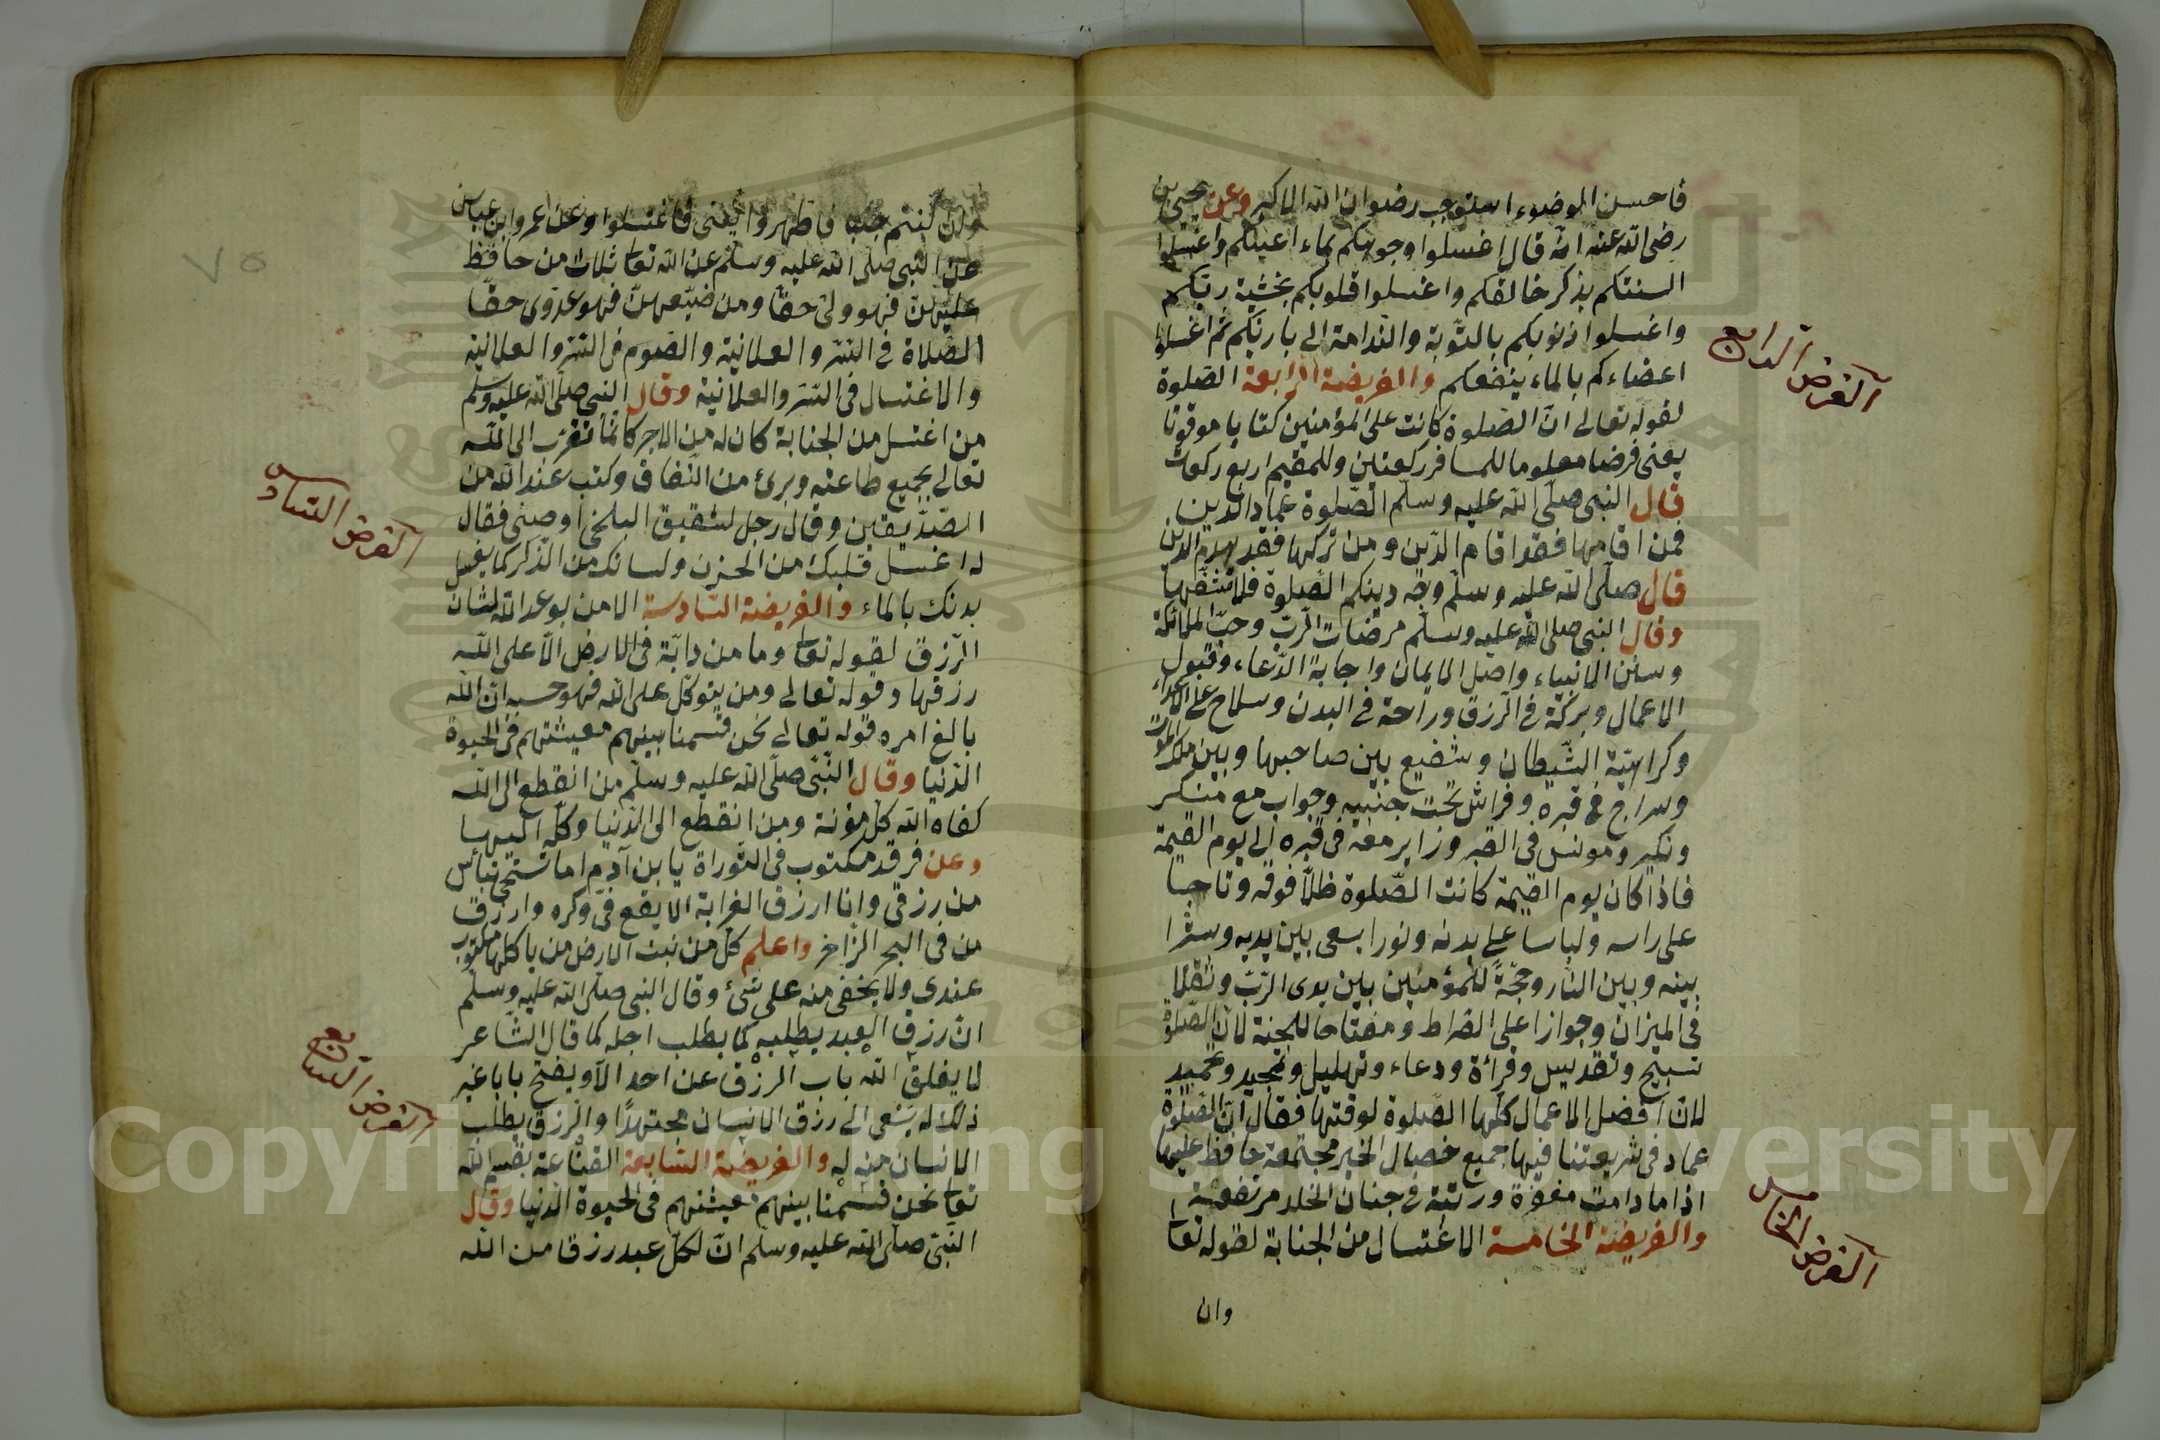 فاحسن الوضوء استوجب رضوان الله الاكبر وعن يحيى بن
رضى الله عنه انه قال اغسلوا وجوهكم بماء اعينكم واغسلوا
السنتكم بذكر خالقكم واغسلوا قلوبكم بخشية ربكم
واغسلوا ذنوبكم بالتوبة والندامة الى باريكم ثم اغسلوا
اعضاءكم بالماء ينفعكم والفريضة الرابعة الصلوة
لقوله تعالى ان الصلوة كانت على المؤمنين كتابا موقوتا
يعنى فرضا معلوما للمسافر ركعتين وللمقيم اربع ركعات
قال النبى صلى الله عليه وسلم الصلوة عماد الدين
فمن اقامها فقد اقام الدين ومن تركها فقد هدم الدين
قال صلى الله عليه وسلم وجه دينكم الصلوة فلا
وقال النبى صلى الله عليه وسلم مرضات الرب وحب الملائكة
وسنن الانبياء واصل الايمان واجابة الدعاء وقبول
الاعمال وبركة فى الرزق وراحة فى البدن وسلاح على الاعداء
وكراهية الشيطان وشفيع بين صاحبها وبين ملك الموت
وسراج فى قبره وفراش تحت جنبيه وجواب مع منكر
ونكير ومونس فى القبر وزاير معه فى قبره الى يوم القيمة
فاذا كان يوم القيمة كانت الصلوة ظلا فوقه وتاجا
على راسه ولباسا على بدنه ونورا يسعى بين يديه وسترا
بينه وبين النار وحجة للمؤمنين بين يدى الرب وثقلا
فى الميزان وجوازا على الصراط ومفتاحا للجنة لان الصلوة
تسبيح وتقديس وقراءة ودعاء وتهليل وتمجيد وتحميد
لان افضل الاعمال كلها الصلوة لوقتها فقال ان الصلوة
عماد فى شريعتنا فيها جميع خصال الخير مجتمعة حافظ عليها
اذا ما دامت ورتبة فى جنان الخلد مرتفعة
والفريضة الخامسة الاغتسال من الجنابة لقوله تعا
وان
الفرض الرابع
الفرض الخامس
٧٥
وان كنتم جنبا فاطهروا يعنى فاغتسلوا وعن عمر وابن عباس
عن النبى صلى الله عليه وسلم عن الله تعا ثلاث من حافظ
عليهن فهو ولى حقا ومن ضيعهن فهو عدوى حقا
الصلاة فى السر والعلانية والصوم فى السر والعلانية
والاغتسال فى السر والعلانية وقال النبى صلى الله عليه وسلم
من اغتسل من الجنابة كان له من الاجر كانما تقرب الى الله
تعالى بجميع طاعته وبرئ من النفاق وكتب عند الله من
الصديقين وقال رجل لشقيق البلخى اوصنى فقال
له اغسل قلبك من الحزن ولسانك من الذكر كما يغسل
بدنك بالماء والفريضة السادسة الامن بوعد الله لشان
الرزق لقوله تعا وما من دابة فى الارض الا على الله
رزقها وقوله تعالى ومن يتوكل على الله فهو حسبه ان الله
بالغ امره قوله تعالى نحن قسمنا بينهم معيشتهم فى الحيوة
الدنيا وقال النبى صلى الله عليه وسلم من انقطع الى الله
كفاه الله كل مؤنة ومن انقطع الى الدنيا وكله اليها
وعن فرقد مكتوب فى التوراة يا بن آدم اما تستحى تيأس
من رزقى وانا ارزق الغرابة الابقع فى وكره وارزق
من فى البحر الزاخر واعلم كل من نبت الارض من ياكلها مكتوب
عندى ولا يخفى منه على شئ وقال النبى صلى الله عليه وسلم
ان رزق العبد يطلبه كما يطلب اجله كما قال الشاعر
لا يغلق الله باب الرزق عن احد الا ويفتح بابا غير
ذلك له يسعى الى رزق الانسان مجتهدا والرزق يطلب
الانسان منه له والفريضة السابعة القناعة بقسم الله
تعا نحن قسمنا بينهم معيشتهم فى الحيوة الدنيا وقال
النبى صلى الله عليه وسلم ان لكل عبد رزقا من الله
الفرض السادس
الفرض السابع
Copyright © King Saud University
195